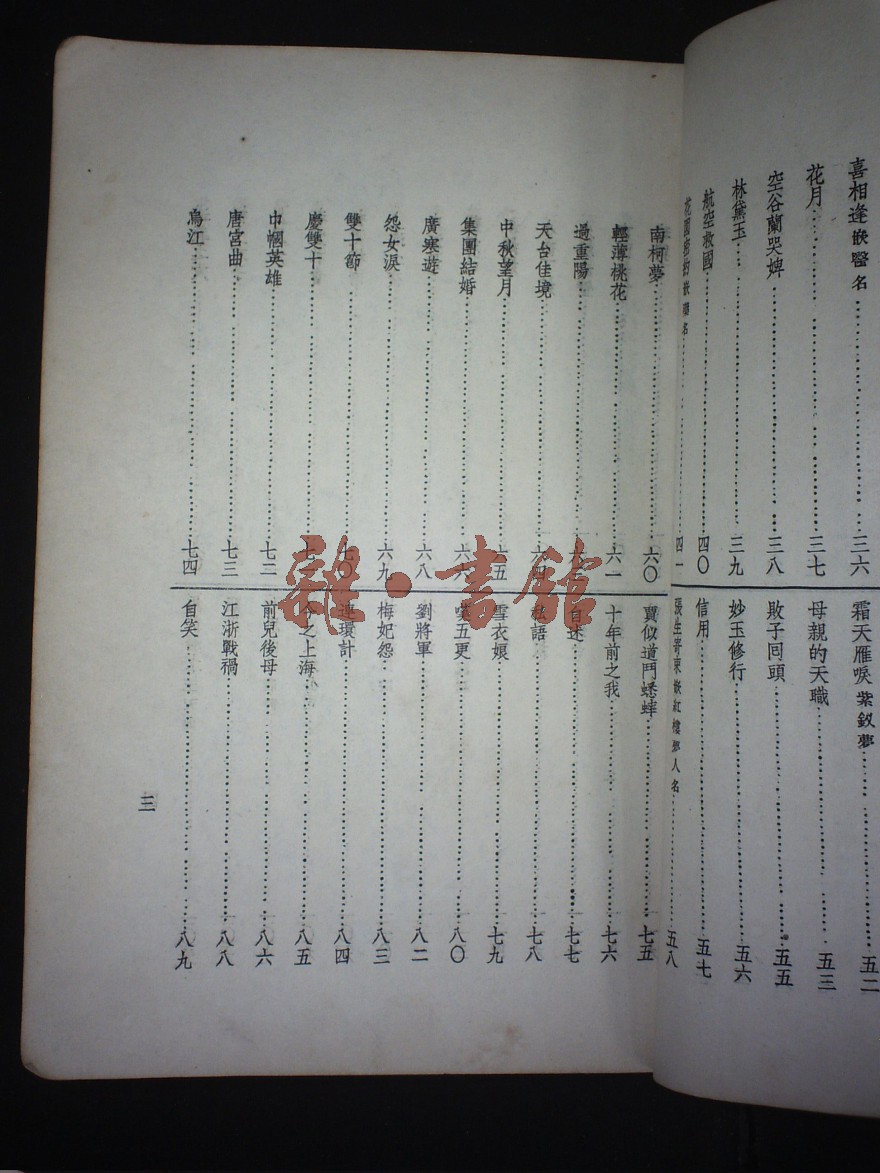 喜相逢嵌醫名……三六
花月……三七
空谷蘭哭婢……三八
林黛玉……三九
航空救國……四〇
四一
霜天雁唳紫釵夢……五二
母親的天職……五三
敗子回頭……五五
妙玉修行……五六
信用……五七
張生寄柬嵌紅樓夢人名……五八
南柯夢……六〇
輕薄桃花……六一
過重陽……六三
天台佳境……六四
中秋望月……六五
集團結婚……六六
廣寒遊……六八
怨女淚……六九
雙十節……七〇
慶雙十……七一
巾幗英雄……七二
唐宮曲……七三
烏江……七四
賈似道鬥蟋蟀……七五
十年前之我……七六
自述……七七
私語……七八
雪衣娘……七九
嘆五更……八〇
劉將軍……八二
梅妃怨……八三
連環計……八四
今之上海……八五
前兒後母……八六
江浙戰禍……八八
自笑……八九
三
雜·書館